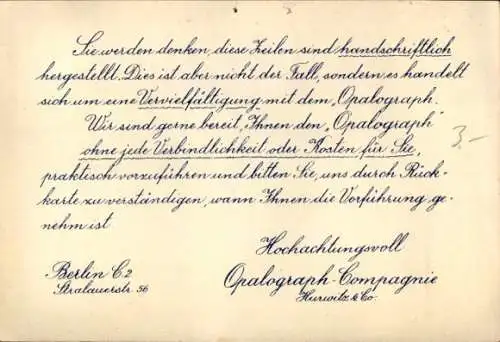 Sie werden denken, diese Zeilen sind handschriftlich
hergestellt. Dies ist aber nicht der Fall, sondern es handelt
sich um eine Vervielfältigung mit dem „Opalograph.
Wir sind gerne bereit, Ihnen den „Opalograph"
ohne jede Verbindlichkeit oder Kosten für Sie,
praktisch vorzuführen und bitten Sie, uns durch Rück-
karte zu verständigen, wann Ihnen die Vorführung ge-
nehm ist
3.-
Hochachtungsvoll
Berlin C. 2
Opalograph-Compagnie
Stralauerstr. 56
Hurwitz & Co.